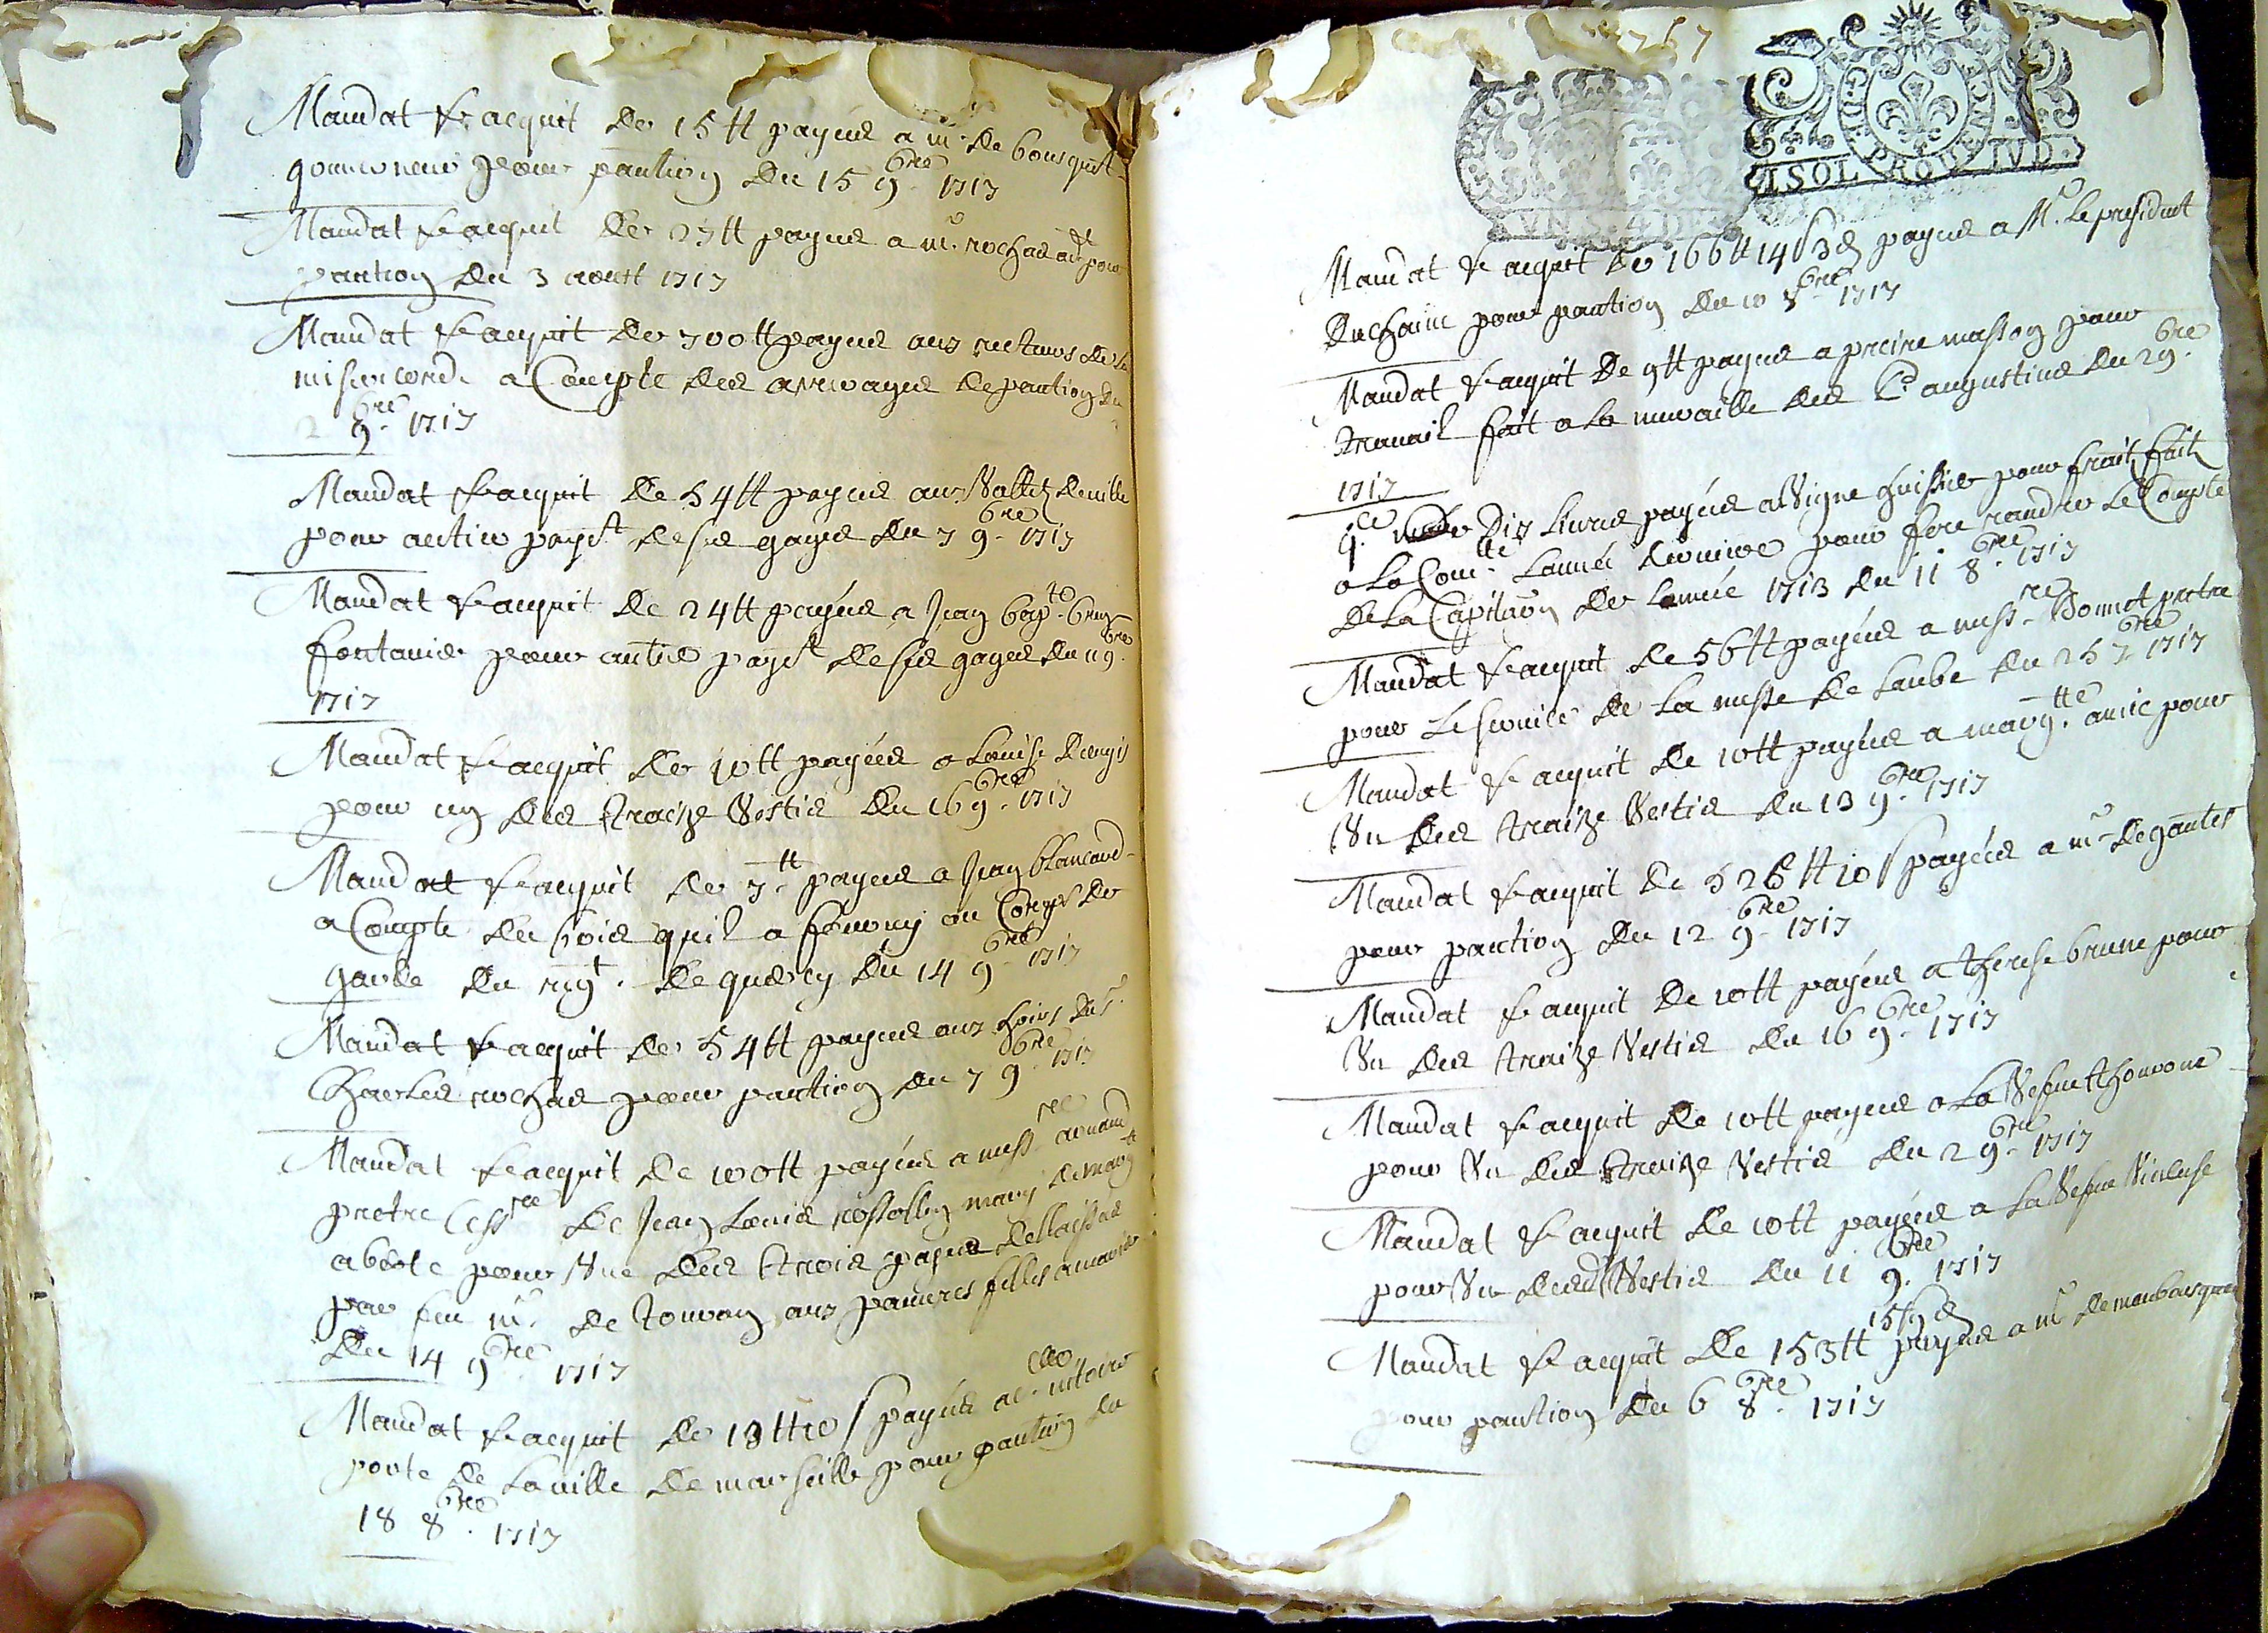 Mandat & acquit de 15 tt payées a mr de bousquet
gouverneur pour pantion du 15 9bre 1717
Mandat & acquit de 27 tt payées a mr rochas adt pour
pantion du 3 aoust 1717
Mandat & acquit de 700 tt payées aux recteurs de la
misericorde a Compte des arrerages de pantion du
2 9bre 1717
Mandat & acquit de 54 tt payées aux Valletz de ville
pour antier payet de ses gages du 7 9bre 1717
Mandat & acquit de 24 tt payées a Jean bapte brun
fontanier pour antier payet de ses gages du 11 9bre
1717
Mandat & acquit de 10 tt payées a Louise
pour un des traize Vestis du 16 9bre 1717
Mandat & acquit de 7 tt payées a Jean blancard
a Compte du bois quil a fourny au Corps de
garde du regt. de quercy du 14 9bre 1717
Mandat & acquit de 54 tt payées aux hoirs du sr
Charles rochas pour pantion du 7 9bre 1717
Mandat & acquit de 100 tt payées a messre arnaud
pretre Cessre de Jean Louis rossollin mary de margtte
abeste pour Une des trois payes dellaissees
par feu mr de touron aux pauvres filles a marier
du 14 9bre 1717
Mandat & acquit de 13 tt 10 s payés a
porte de la ville de marseille pour pantion du
18 8bre 1717
757
GD. DE PROVENCE
A SOL. PROU. I VD.
VN S. 4 D.
Mandat & acquit de 166 tt 14 s 3 d payées a Mr. Le president
Duchaine pour pantion du 10 8bre 1717
Mandat & acquit de 9 tt payées a preire masson pour
travail fait a la muraille des P. augustins du 2 9bre
1717
q.ce de Dix Livres payées a Vigne huissier pour frait faitz
a la Comtte Lannée derniere pour fere randre Le Compte
De la Capitaon de Lannée 1713 du 11 8bre 1717
Mandat & acquit de 56 tt payées a messre Bonnet pretre
pour Le service de la messe de Laube du 25 7bre 1717
Mandat & acquit de 10 tt payées a margtte amic pour
Un des traize Vestis du 13 9bre 1717
Mandat & acquit de 526 tt 10 s payées a mr de gantes
pour pantion du 12 9bre 1717
Mandat & acquit de 10 tt payées a therese brune pour
Un des traize Vestis du 16 9bre 1717
Mandat & acquit de 10 tt payées a la Vefue thourone
pour Un des traize Vestis du 2 9bre 1717
Mandat & acquit de 10 tt payées a la Vefue
pour Un desd Vestis du 11 9bre 1717
Mandat & acquit de 153 tt 15 s 9 d payées a mr de maubousquet
pour pantion du 6 8bre 1717